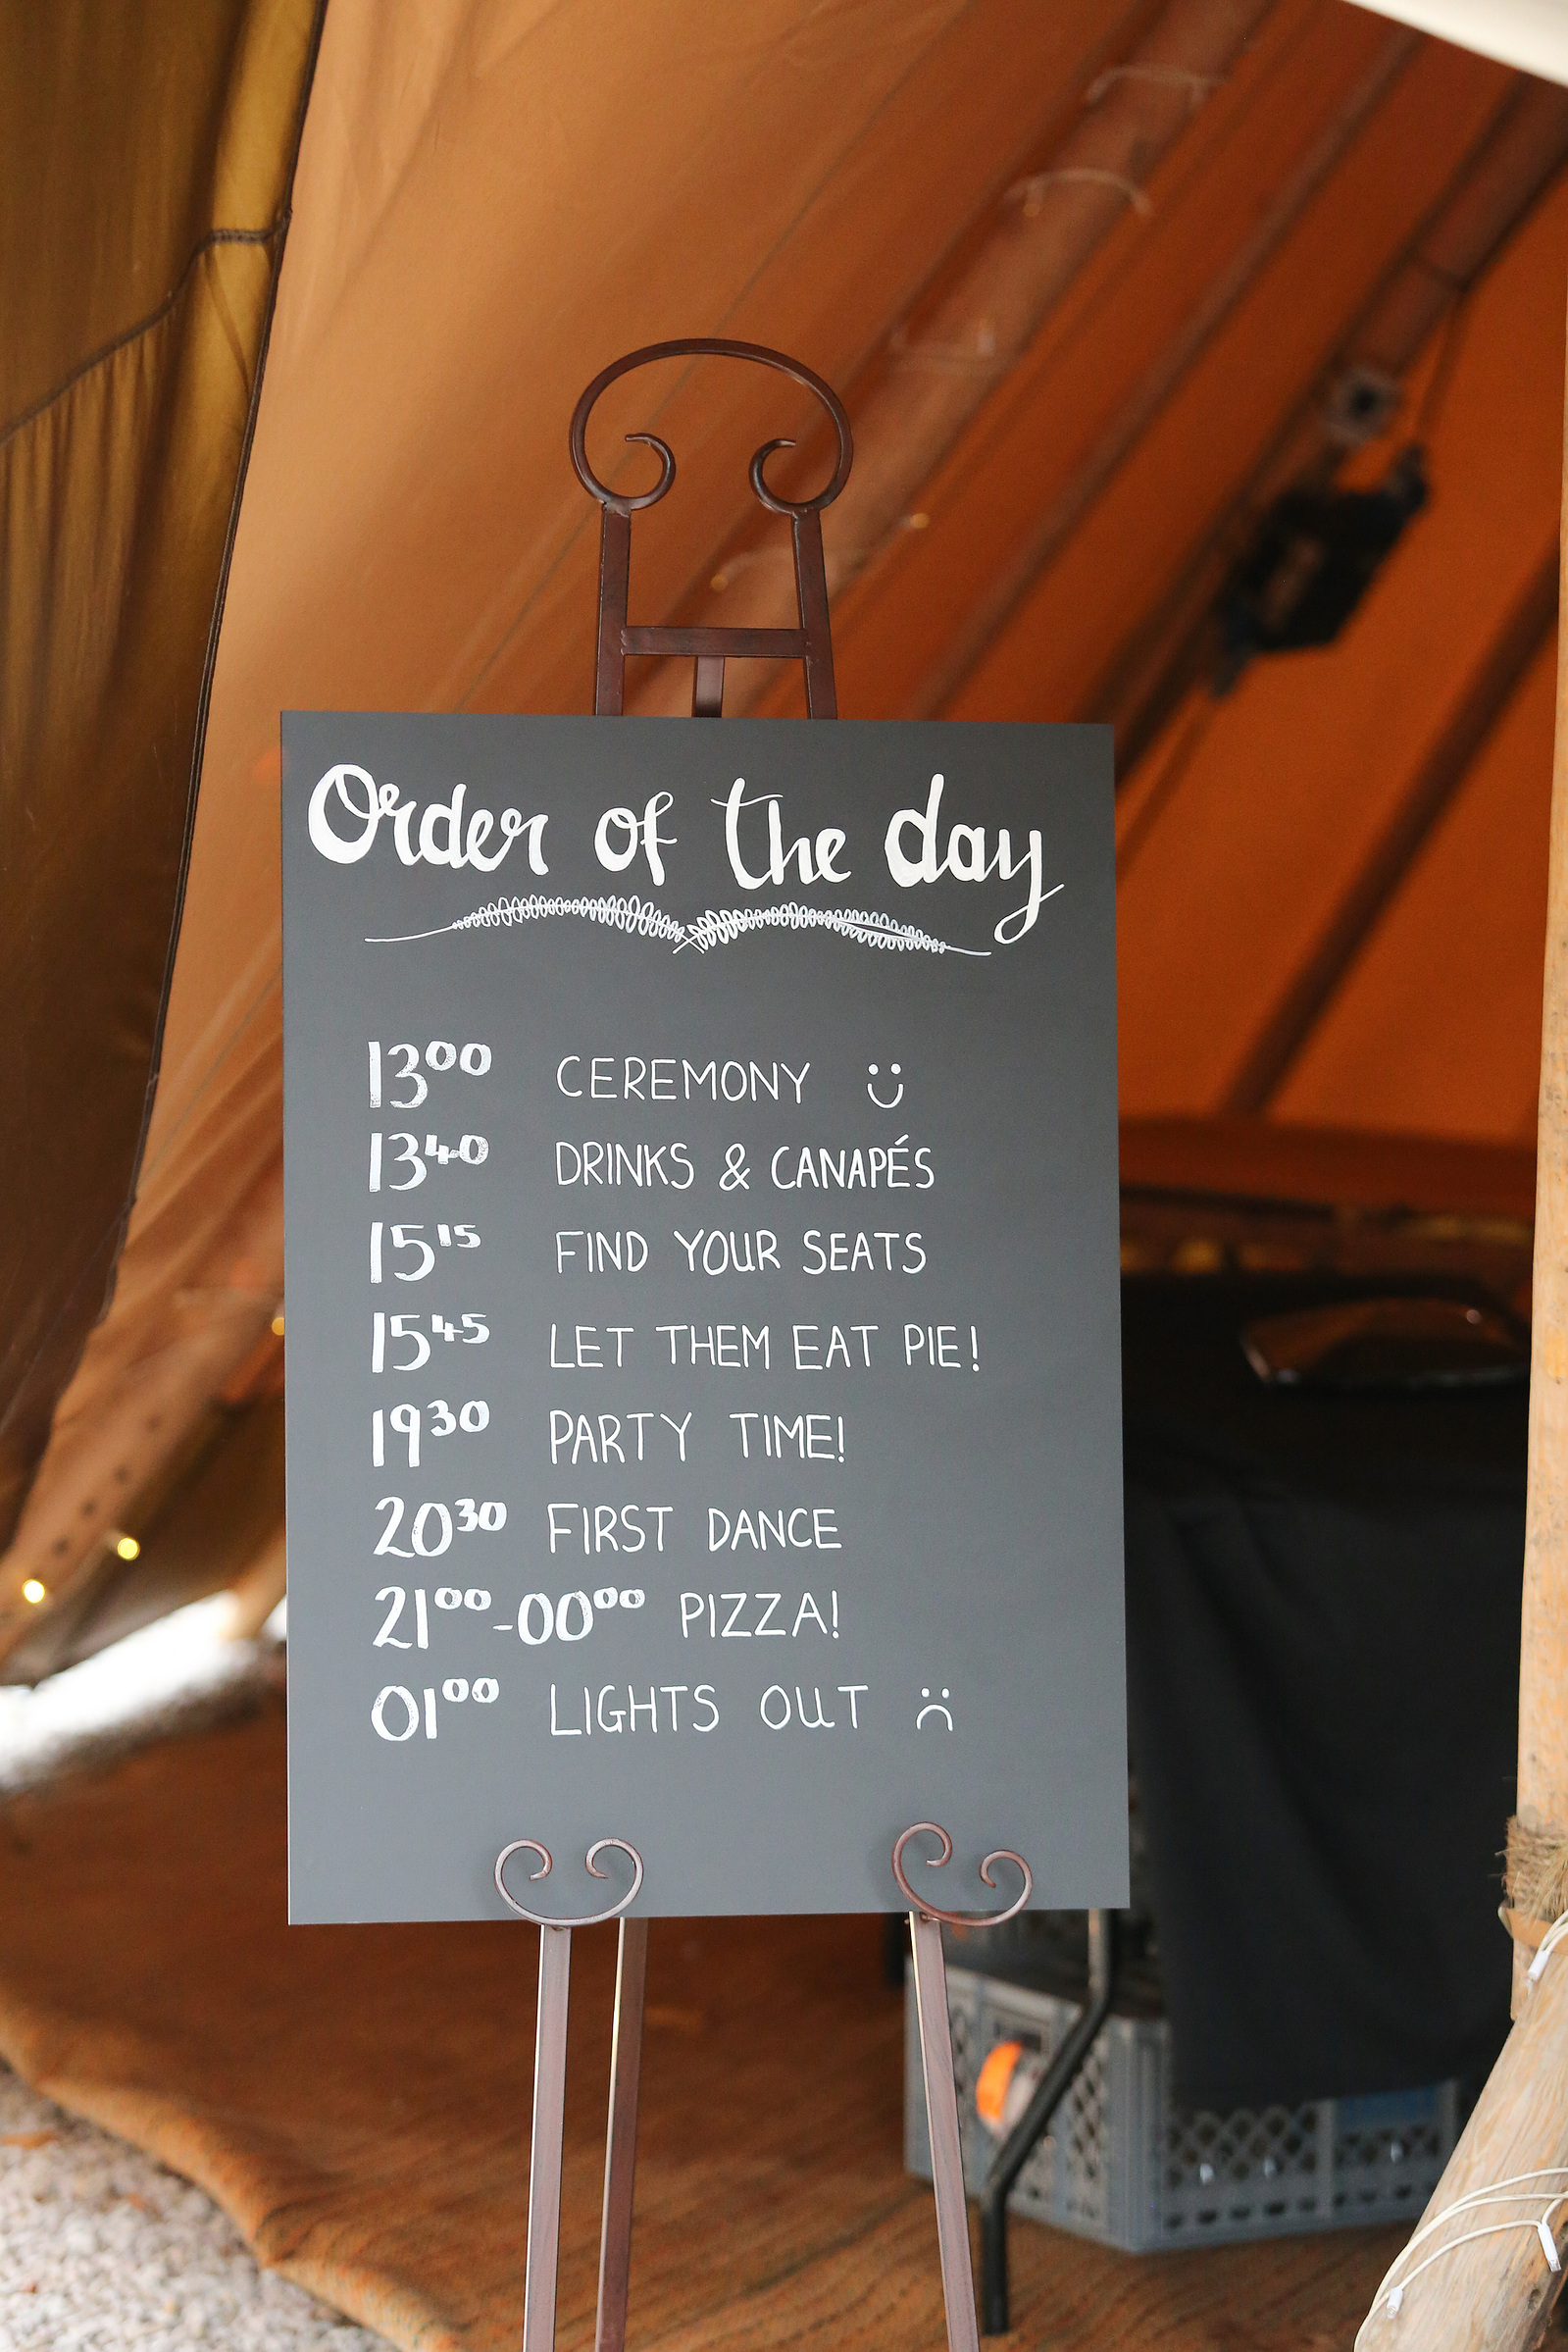 Order of the day
13⁰⁰ CEREMONY
13⁴⁰ DRINKS & CANAPÉS
15¹⁵ FIND YOUR SEATS
15⁴⁵ LET THEM EAT PIE!
19³⁰ PARTY TIME!
20³⁰ FIRST DANCE
21⁰⁰-00⁰⁰ PIZZA!
01⁰⁰ LIGHTS OUT